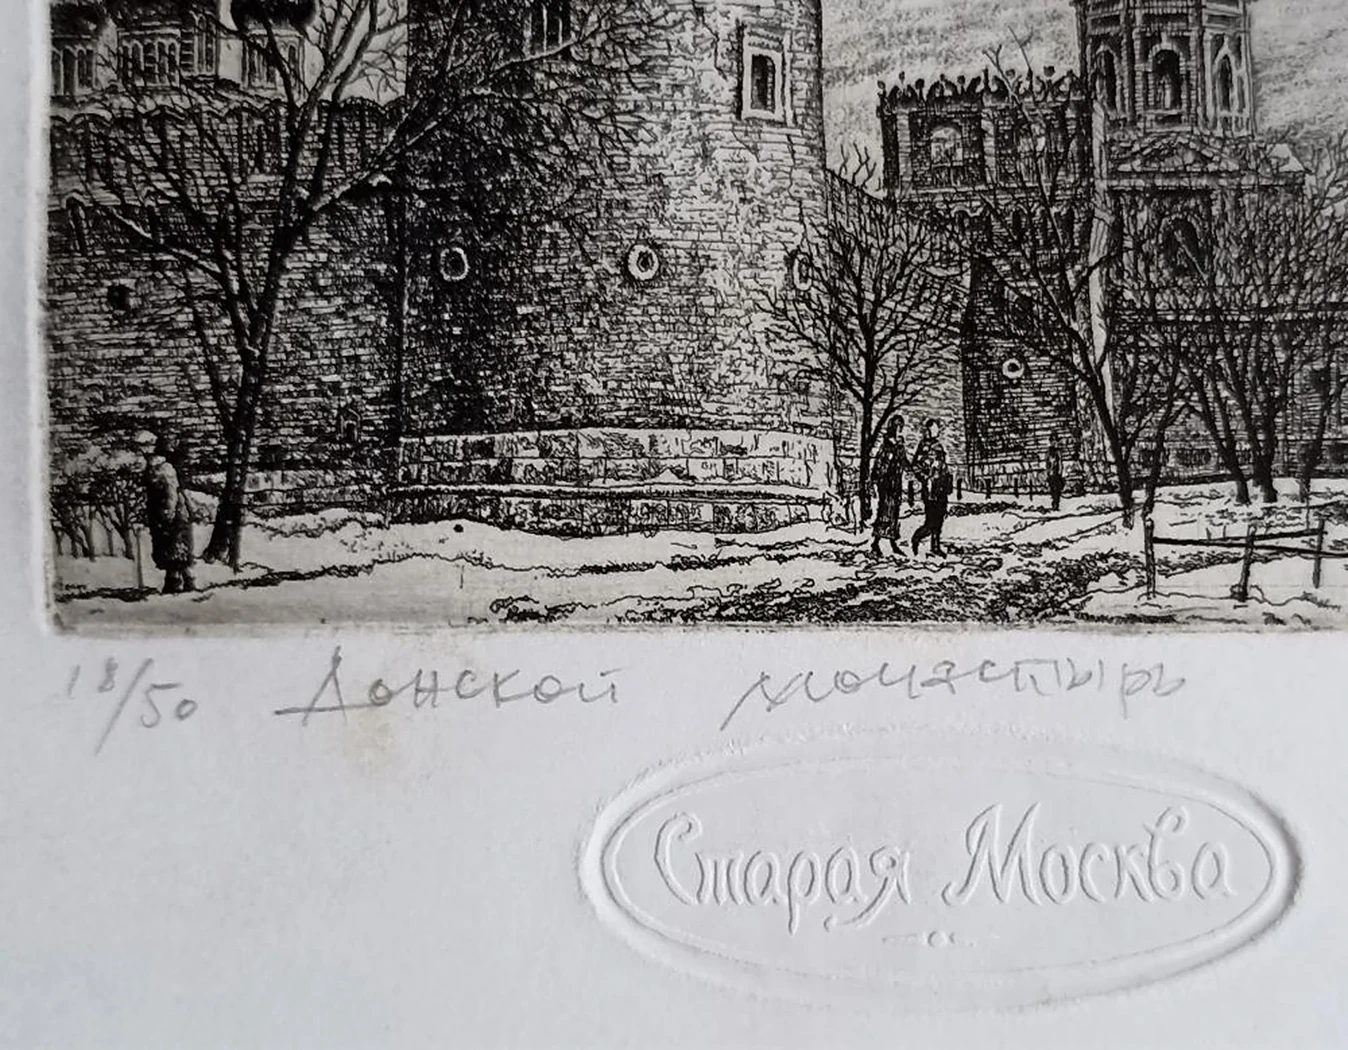 18/50 Донской монастырь
Старая Москва